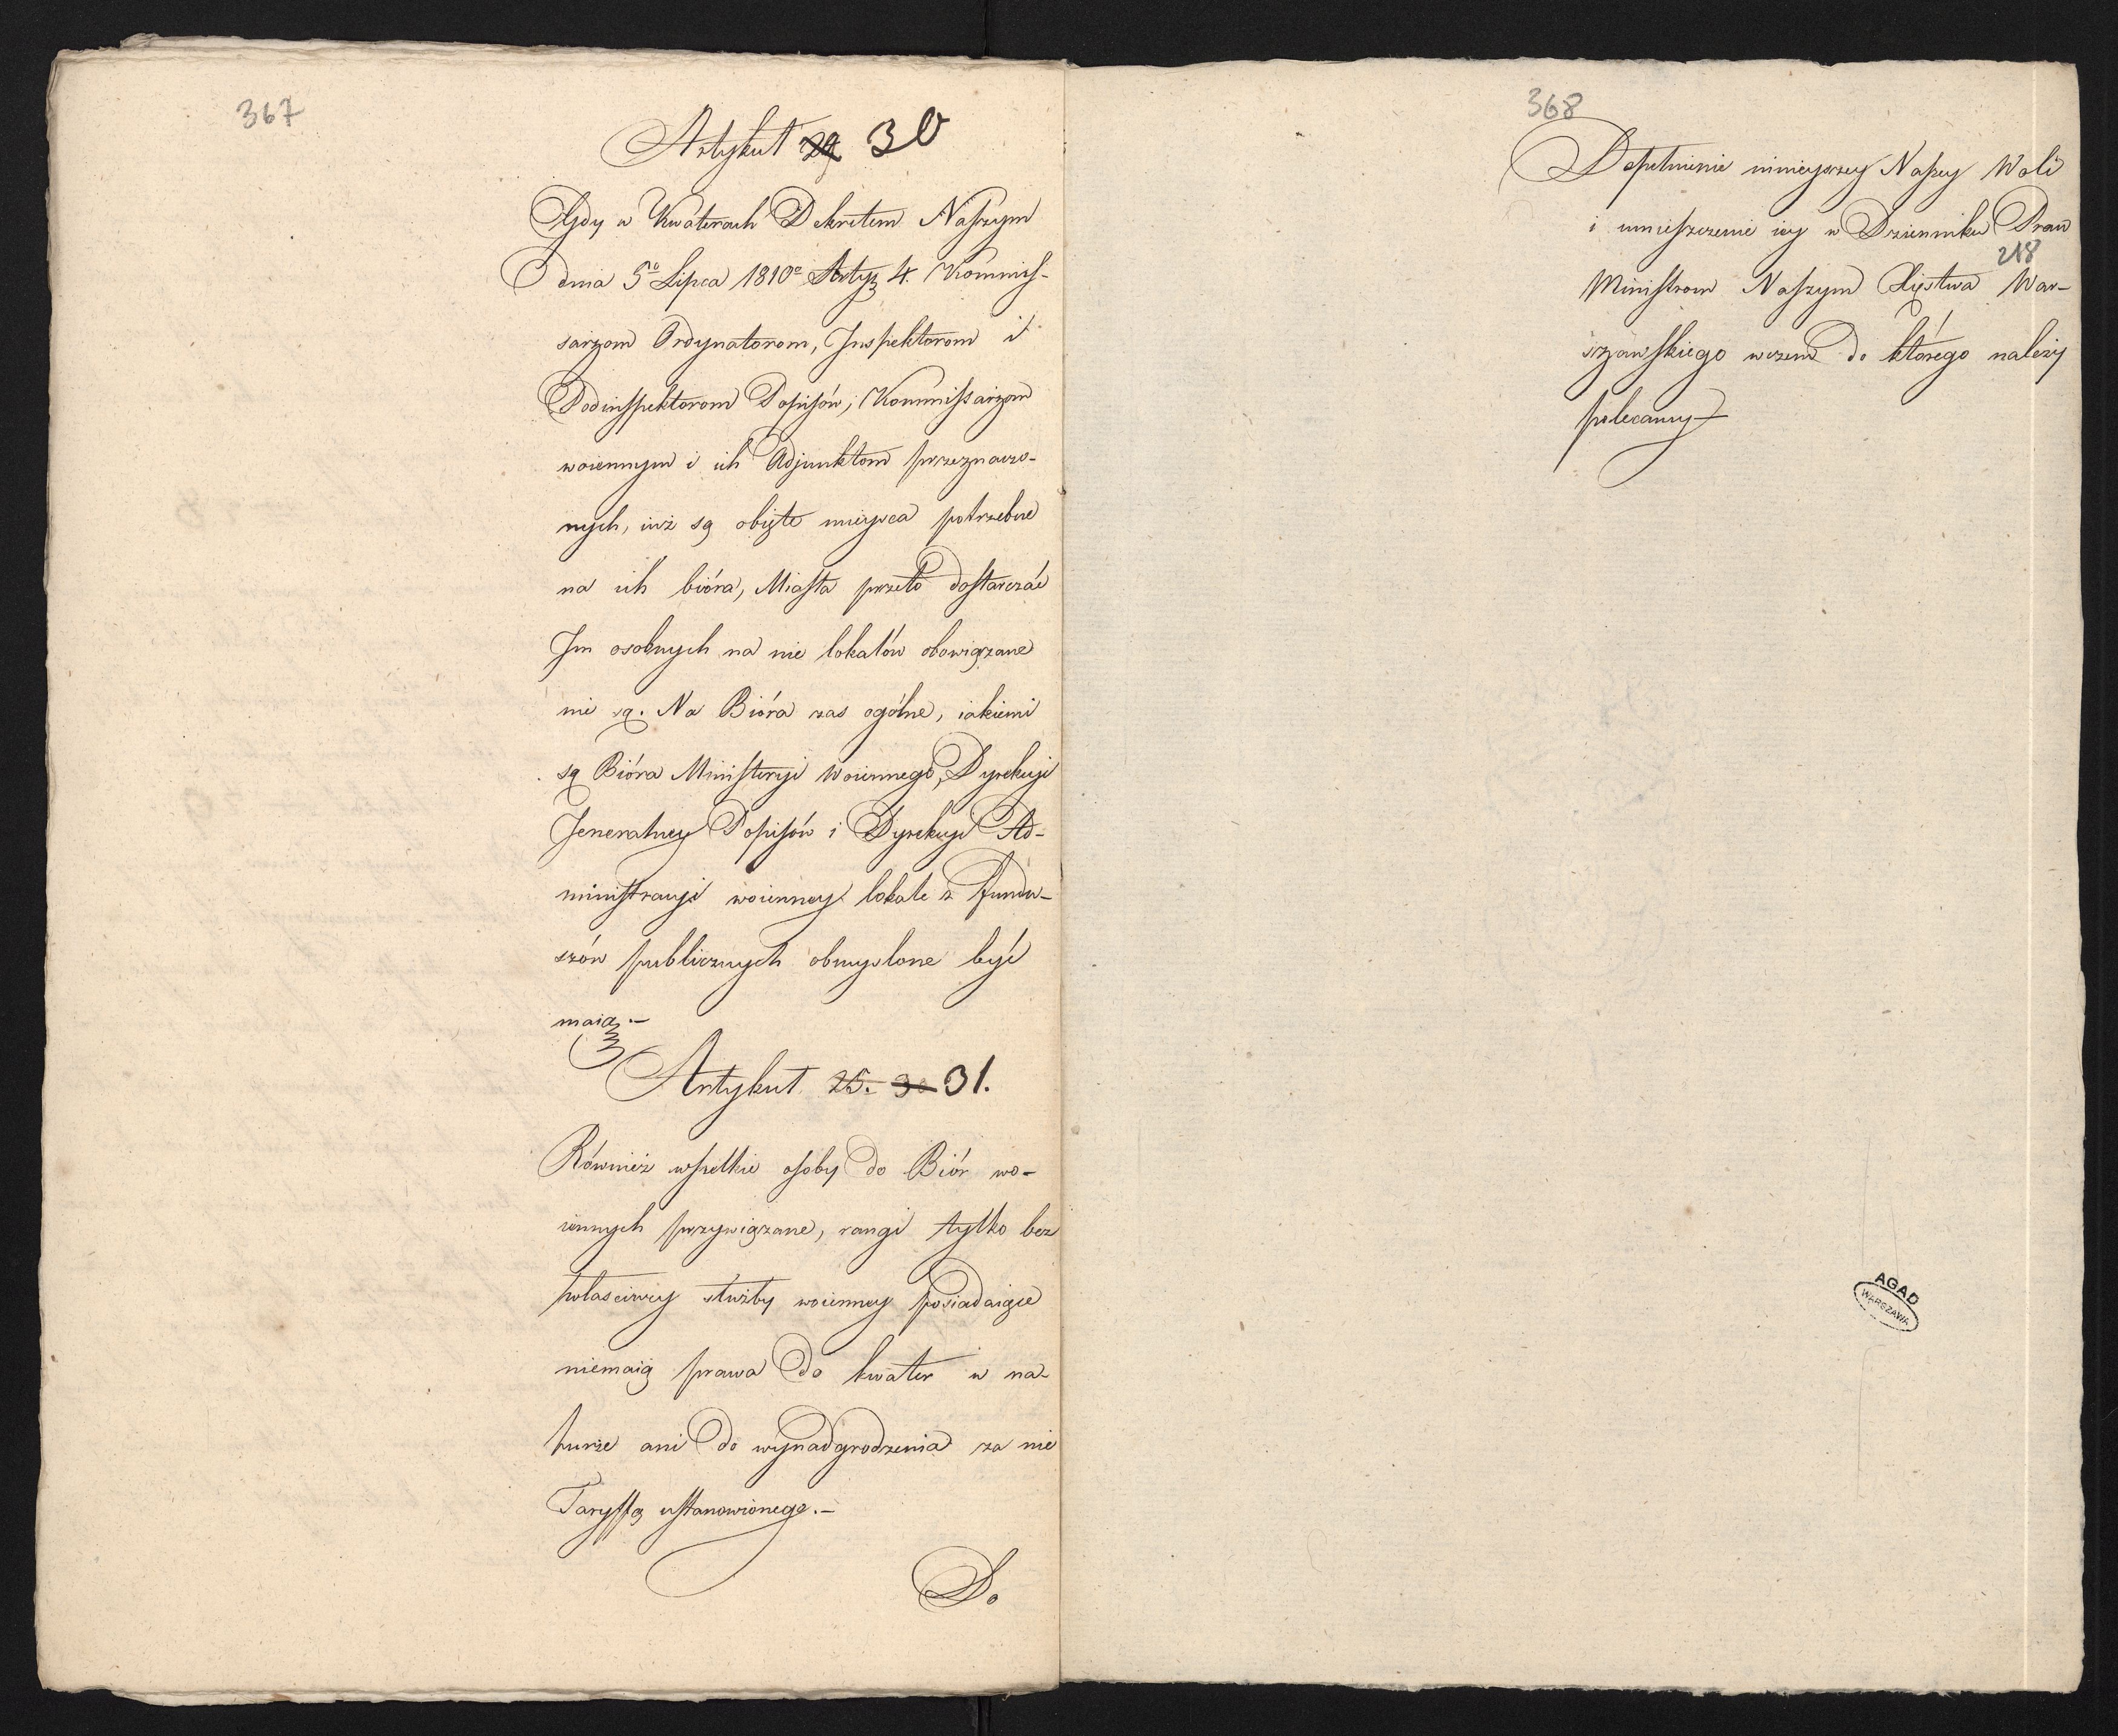 367
Artykuł 29 30
Gdy w Kwaterach Dekretem Naszym
dnia 5º Lipca 1810º Artyż 4. Kommis-
sarzom Ordynatorom, Inspektorom i
Podinspektorom Popisów, Kommissarzom
woiennym i ich Adjunktom przeznaczo-
nych, iuż są obięte mieysca potrzebne
na ich bióra, Miasta przeto dostarczać
Im osobnych na nie lokalów obowiązane
nie są. Na Bióra zas ogólne, iakiemi
są Bióra Ministeryi Woiennego, Dyrekcyi
Jeneralney Popisów i Dyrekcyi Ad-
ministracyi woienney lokale z fundu-
szów publicznych obmyslone być
maią.-
Artykuł 25. 30 31.
Również wszelkie osoby do Biór wo-
iennych przywiązane, rangi tylko bez
własciwey służby woienney posiadaiące
niemaią prawa do kwater w na-
turze ani do wynadgrodzenia za nie
Taryffą ustanowionego.-
Do
368
Dopełnienie ninieyszey Naszey Woli
i umieszczenie iey w Dzienniku Praw
218
Ministrom Naszym Xięstwa War-
szawskiego wczem do którego należy
polecamy
AGAD
WARSZAWA